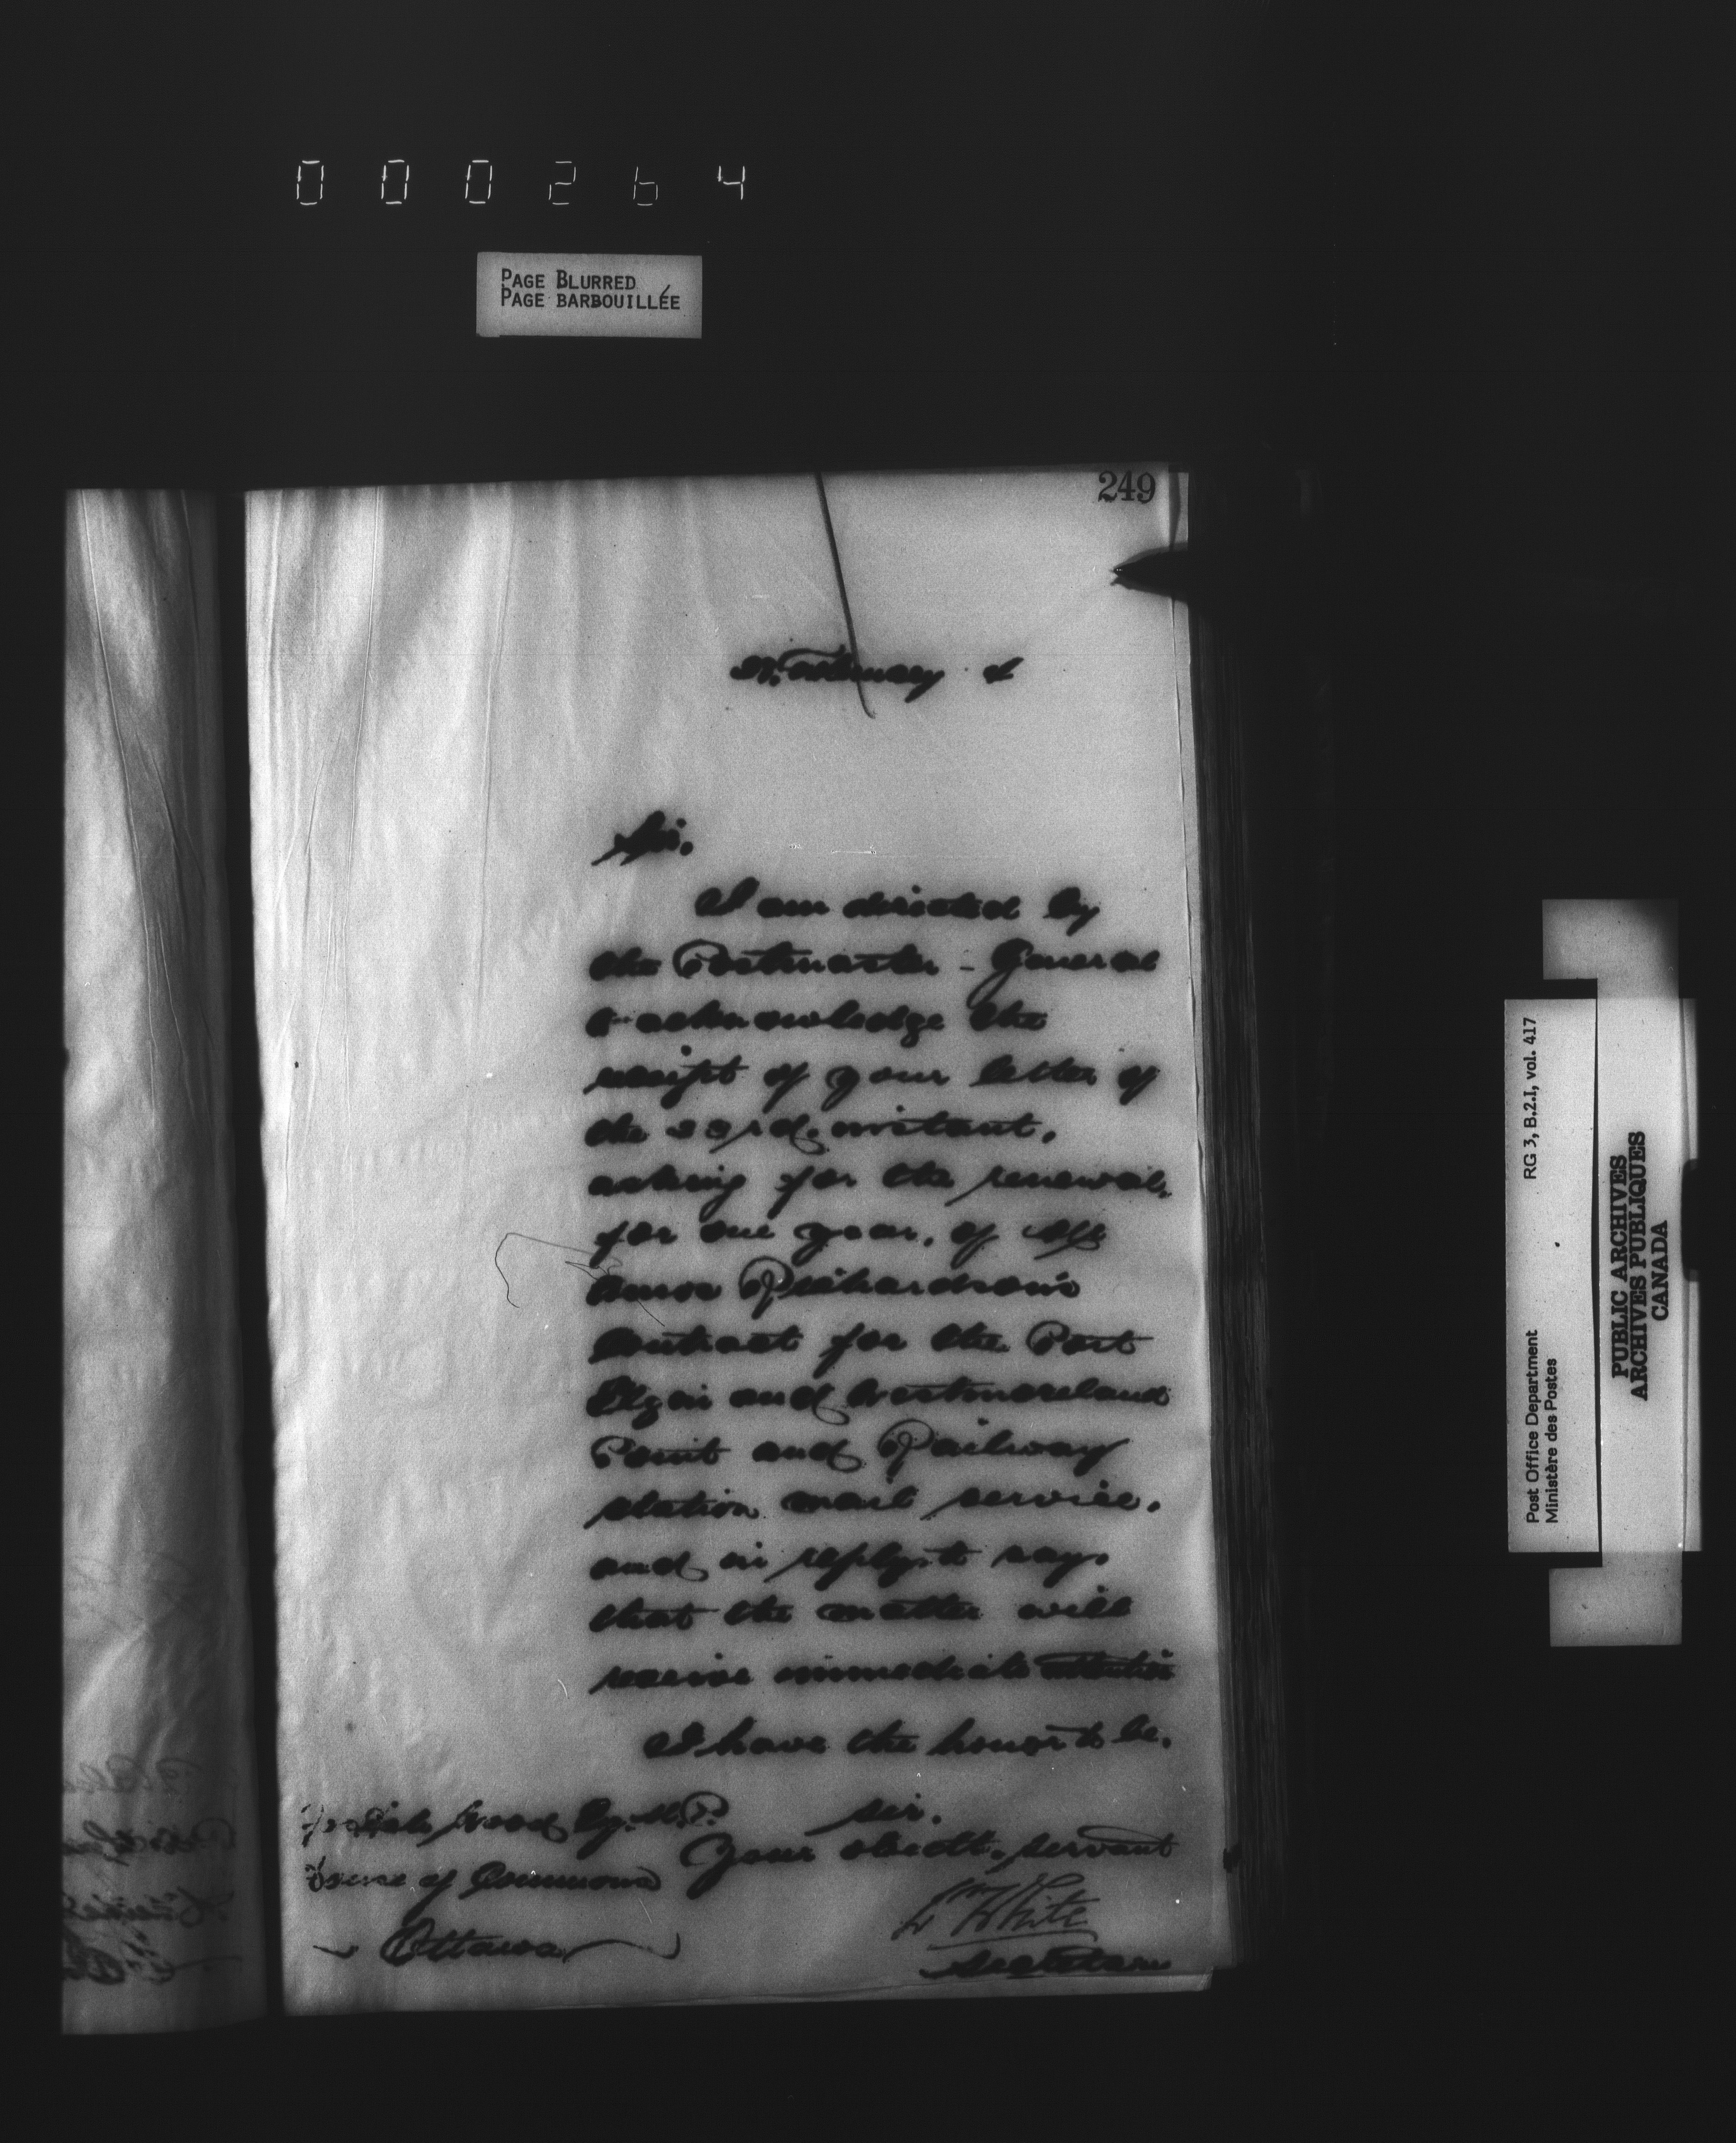 000264
PAGE BLURRED
PAGE BARBOUILLÉE
249
February
Sir,
I am directed by
the Postmaster-General
to acknowledge the
receipt of your letter of
the instant,
asking for the renewal,
for one year, of Mr
Amos Richardson's
contract for the Port
Elgin and Westmoreland
Point and Railway
station mail service,
and in reply, to say,
that the matter will
receive immediate attention
I have the honor to be,
Sir,
Your obedt. servant
Wm White
Secretary
Josiah Wood Esq. M.P.
House of Commons
Ottawa
Post Office Department
Ministère des Postes
RG 3, B.2.I, vol. 417
PUBLIC ARCHIVES
ARCHIVES PUBLIQUES
CANADA